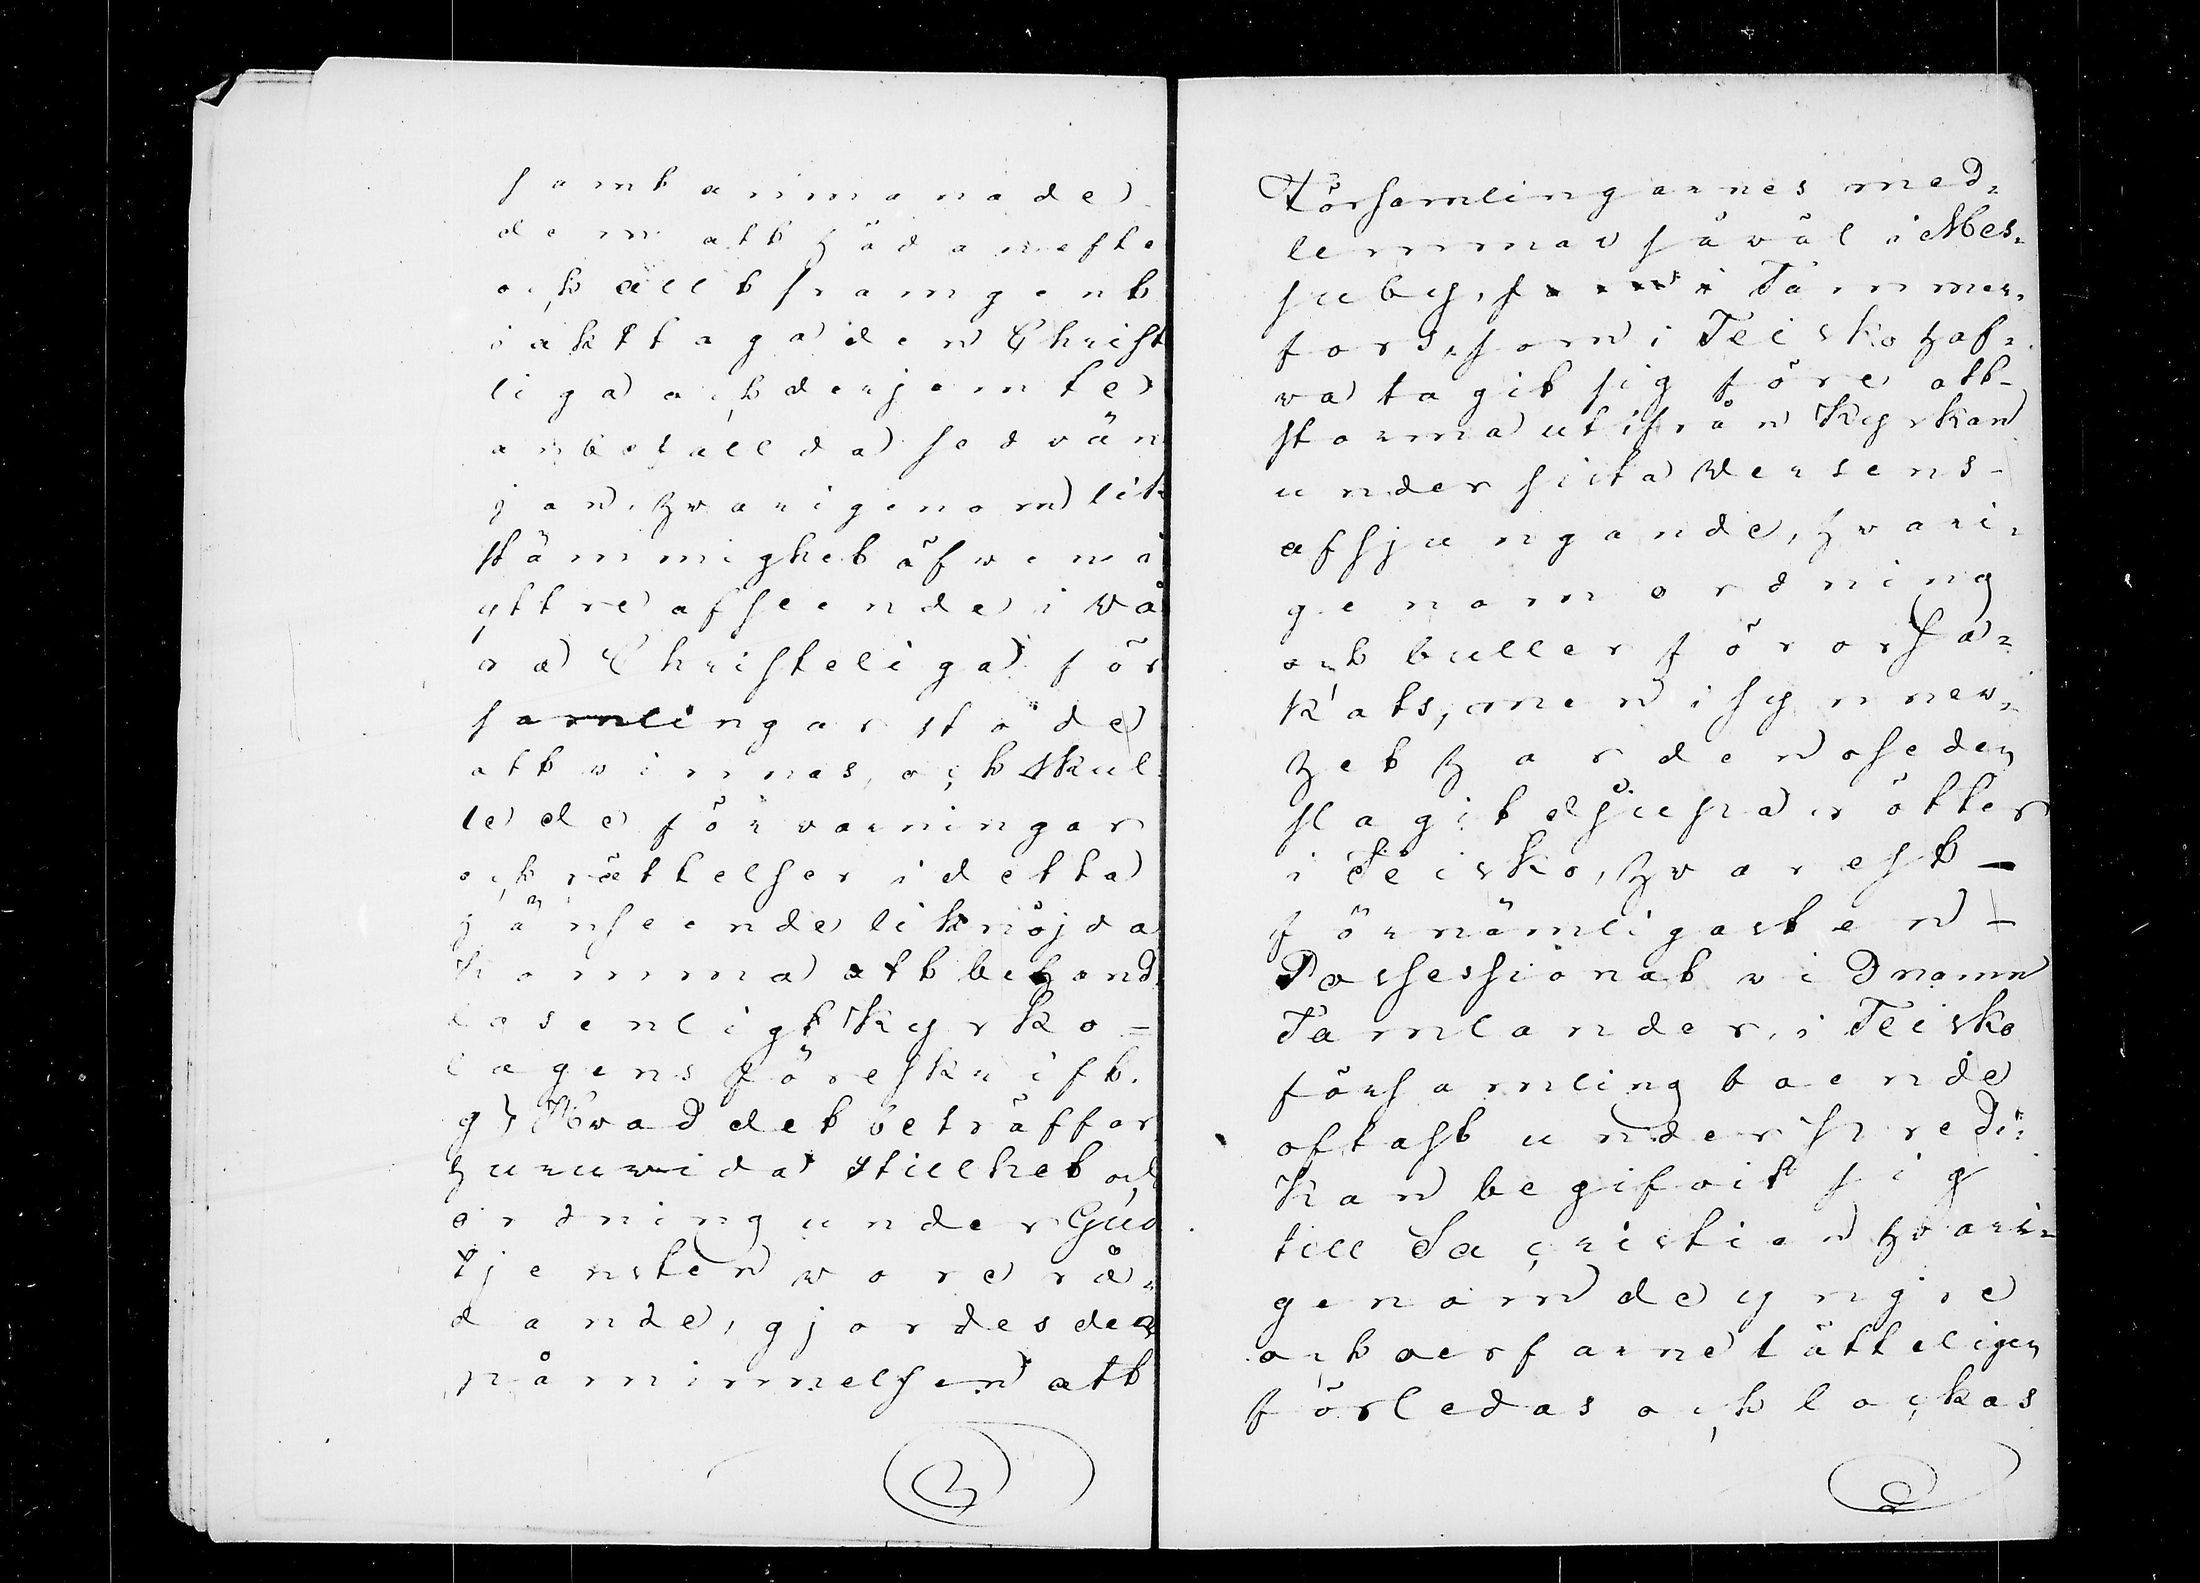 samt anmanade
dem att hädanefte
och allt framgent
iakttaga den Christ
liga och derjemte
anbefallda sedvän
jan, hvarigenom lik
stämmighet äfven i
yttre afseende i vå
ra Christeliga för
samlingar stode
att vinnas, och skul
le de förvarningar
och rättelser i detta
hänseende liknöjda
komma att behand
las enligt Kyrko-
lagens föreskrift.
g) Hvad det beträffar
huruvida stillhet och
ordning under Gud
tjensten vore rå-
dande, gjordes den
påminnelsen att
Församlingarnes med-
lemmar såväl i Mes-
suby, som i Tammer-
fors, som i Teisko haf-
va tagit sig före att
storma ut ifrån Kyrkan
under sista Versens
afsjungande, hvari-
genom ordning
och buller föorsa-
kats, men i synner-
het har den oseden
slagit djupa rötter
i Teisko, hvarest
förnämligast en
Possessionat vid namn
Tamlander, i Teisko
församling boende
oftast under predi-
kan begifvit sig
till Sacristian hvari-
genom de yngre
och oerfarne lätteligen
förledas och lockas